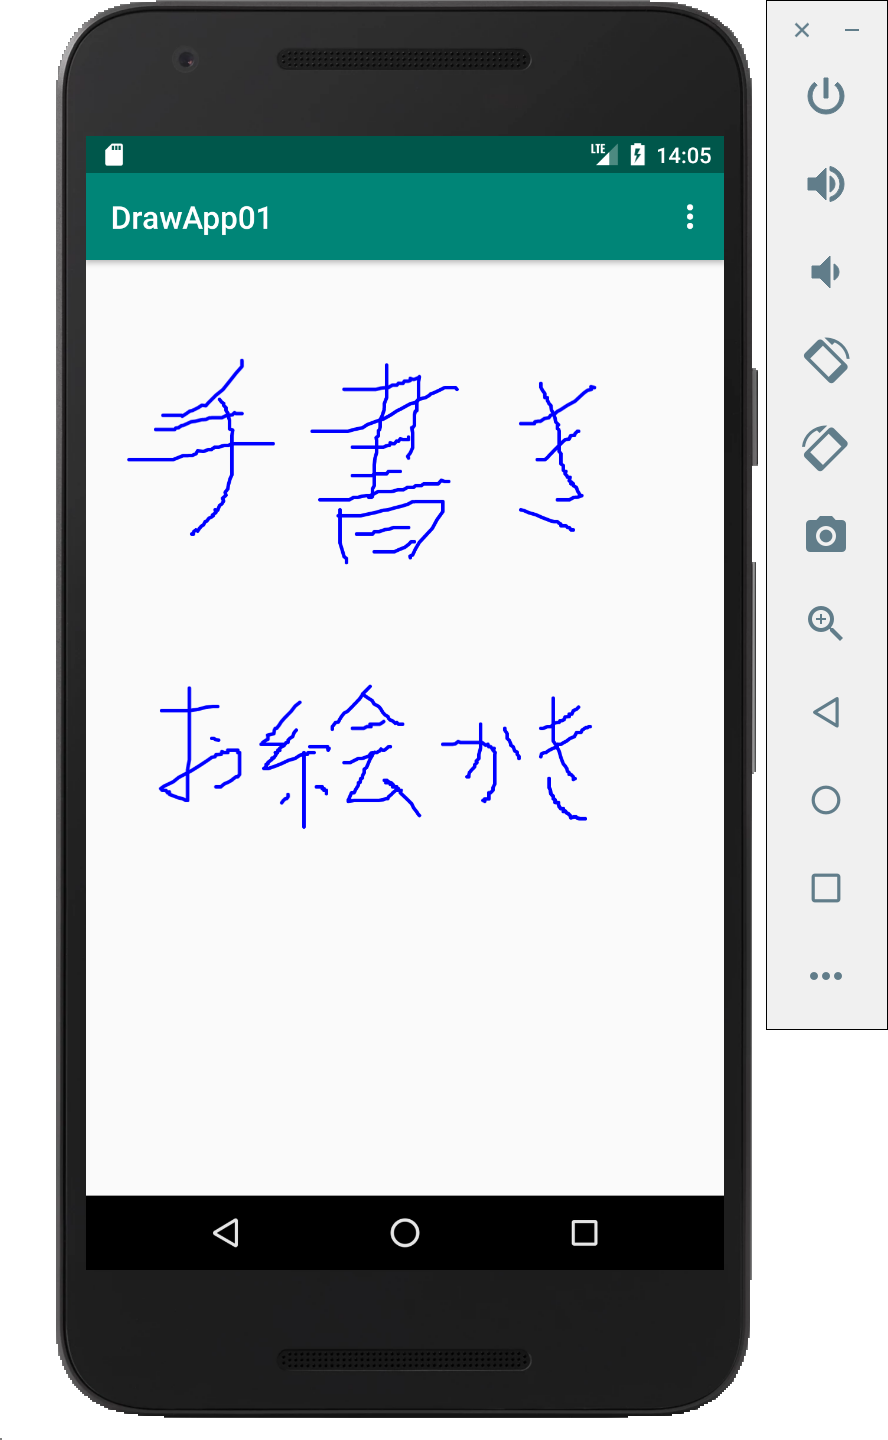 LTE 14:05
DrawApp01
手書き
お絵かき